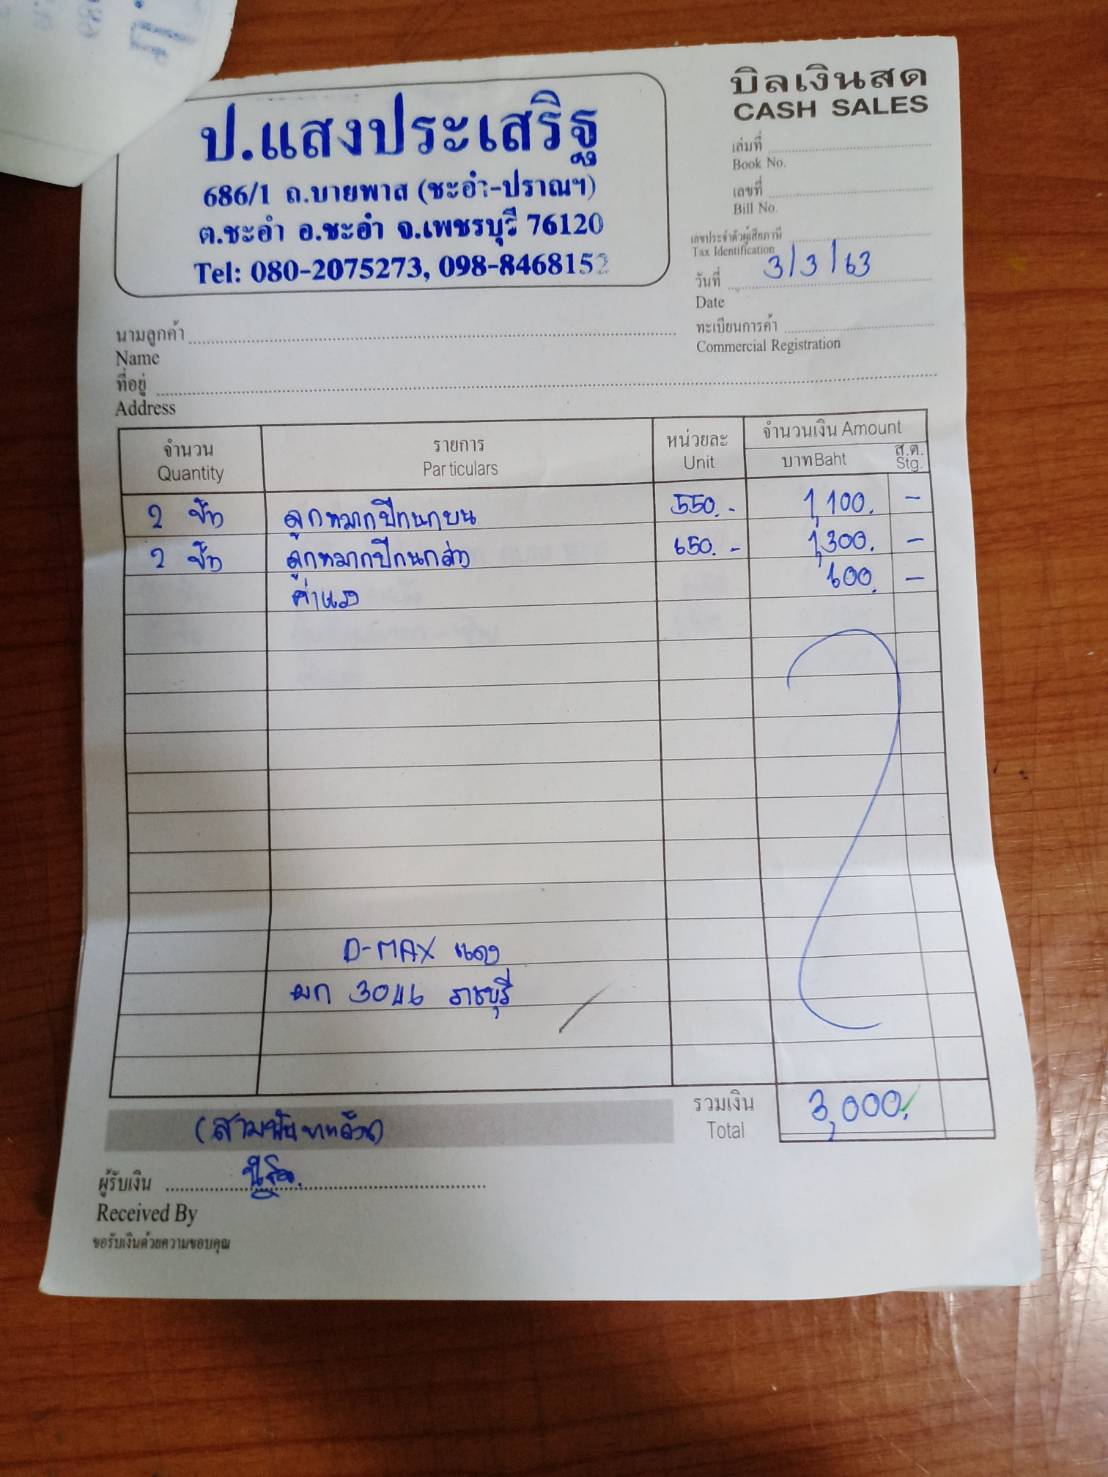 บิลเงินสด
CASH SALES
ป.แสงประเสริฐ
686/1 ถ.บายพาส (ชะอำ-ปราณฯ)
ต.ชะอำ อ.ชะอำ จ.เพชรบุรี 76120
Tel: 080-2075273, 098-8468152
เล่มที่
Book No.
เลขที่
Bill No.
เลขประจำตัวผู้เสียภาษี
Tax Identification
วันที่ 3/3/63
Date
ทะเบียนการค้า
Commercial Registration
นามลูกค้า
Name
ที่อยู่
Address
จำนวน รายการ หน่วยละ จำนวนเงิน Amount
Quantity Particulars Unit บาท Baht ส.ต. Stg.
2 ลูกหมากปีกนกบน 550.- 1,100. -
2 ลูกหมากปีกนกล่าง 650.- 1,300. -
ค่าแรง 600. -
D-MAX แดง
ผก 3046 ราชบุรี
รวมเงิน 3,000.
Total
(สามพันบาทถ้วน)
ผู้รับเงิน
Received By
ขอรับเงินด้วยความขอบคุณ